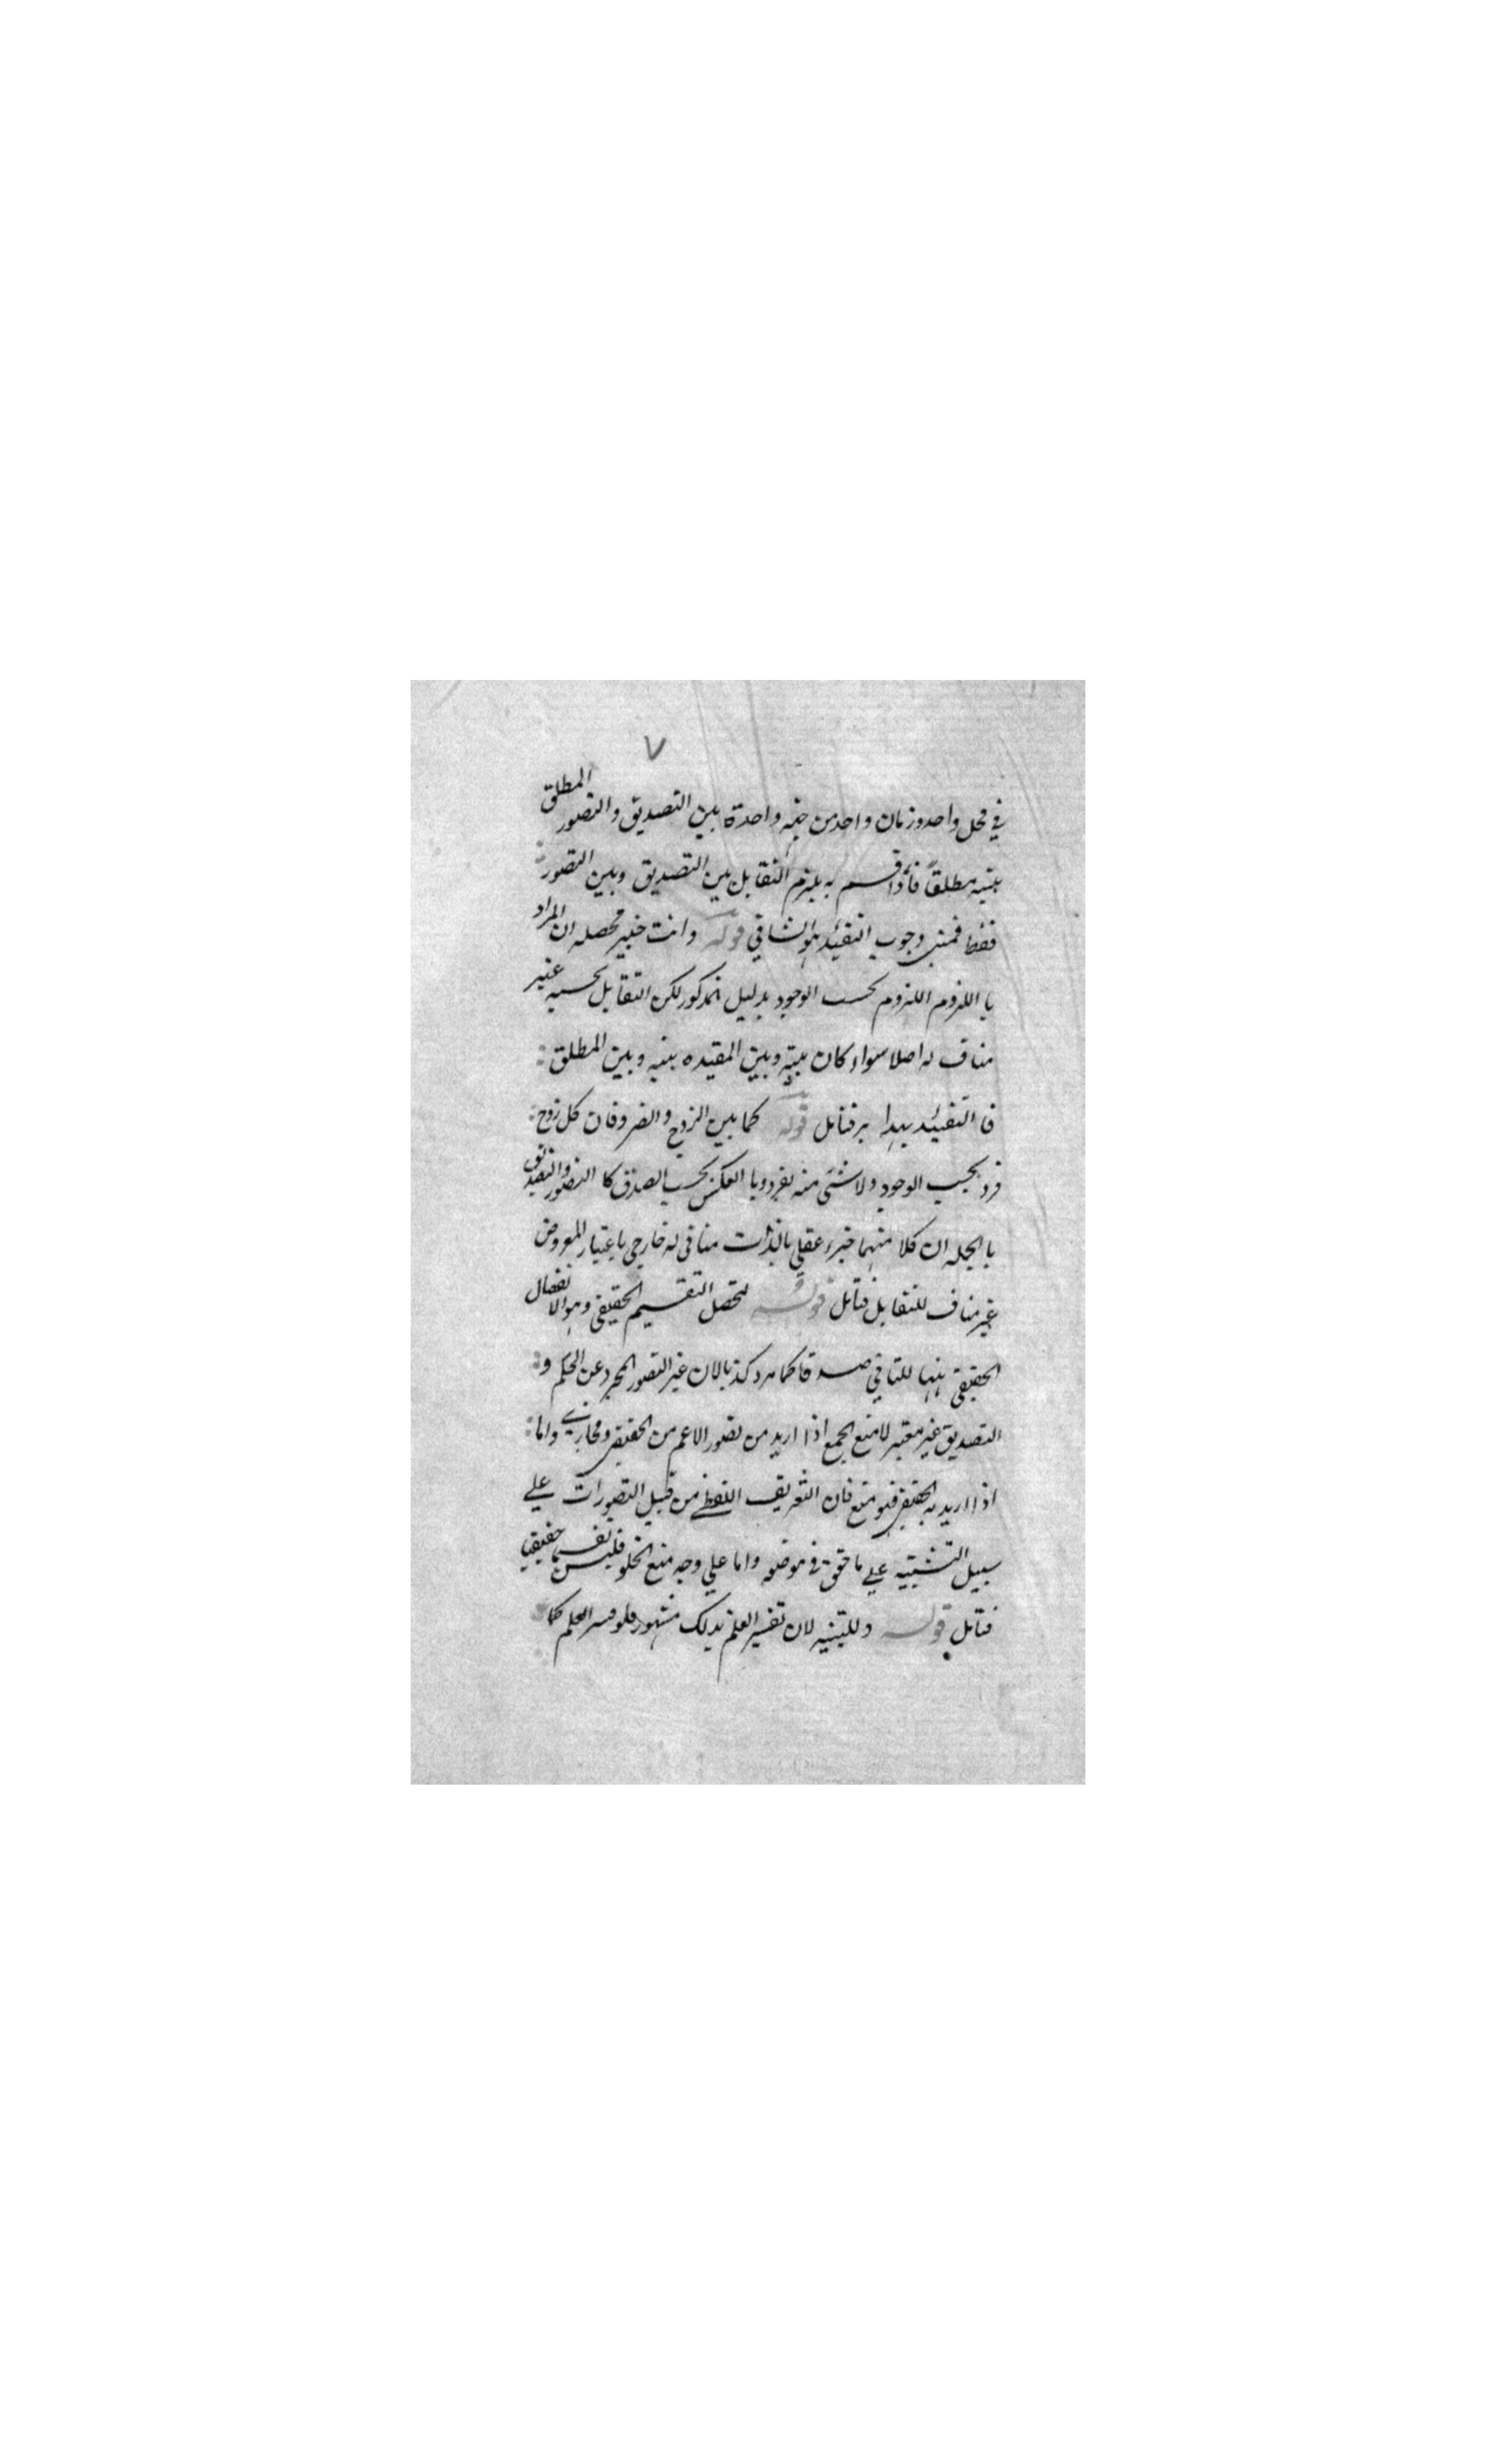 ٧
في محل واحد وزمان واحد من جهة واحدة بين التصديق والتصور المطلق
بينه مطلقاً فاذا قسم به يلزم التقابل بين التصديق وبين التصور
فقط فمبنى وجوب التقيد هو الشافي قوله وانت خبير محصله ان المراد
با اللزوم اللزوم بحسب الوجود بدليل المذكور لكن التقابل بحسبه غير
مناف له اصلا سواء كان بينه وبين المقيد ه بينه وبين المطلق
فا التقيد بهذا فتامل قوله كما بين الزوج والفرد فان كل زوج
فرد بحسب الوجود ولا شئ منه بفرد وبا العكس بحسب الصدق كا التصور والتصديق
با الجمله ان كلا منهما عقلي بالذات منافى له خارجي باعتبار المعروض
غير مناف للتقابل فتامل قوله لتحصل التقسيم الحقيقي وهو الانفصال
الحقيقي بينها للتنافي صدقا كما مر وكذبا لان غير التصور المجرد عن الحكم و
التصديق غير معتبر لا منع الجمع اذا اريد من تصور الاعم من الحقيقي ومجازي واما
اذا اريد به الحقيقي فهو منع فان التعريف اللفظي من قبيل التصورات علي
سبيل التشبيه علي ما حقق في موضعه واما علي وجه منع الخلو فليس تقسيما حقيقيا
فتامل قوله وللتنبيه لان تفسير العلم بذلك مشهور فلو فسر العلم كما